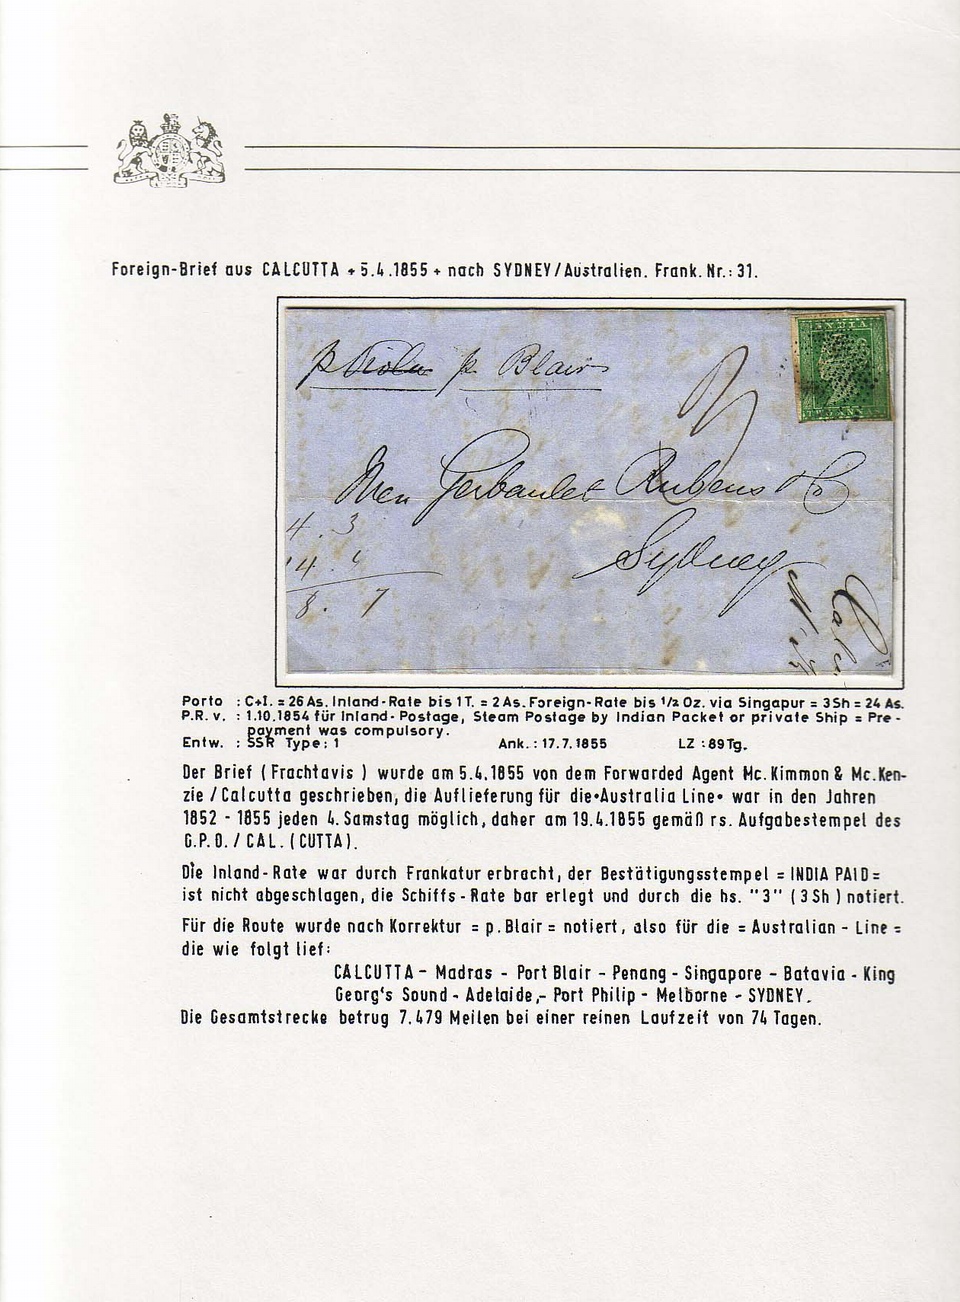 Foreign-Brief aus CALCUTTA + 5.4.1855 + nach SYDNEY/Australien. Frank. Nr.: 31.
p. Blair
INDIA
3
Gerbaulet Rubens & Co
4. 3
Sydney
4. 4
8. 7
Porto : C+I. = 26 As. Inland-Rate bis 1 T. = 2 As. Foreign-Rate bis 1/2 Oz. via Singapur = 3 Sh = 24 As.
P.R. v. : 1.10.1854 für Inland-Postage, Steam Postage by Indian Packet or private Ship = Pre-
payment was compulsory.
Entw. : SSR Type: 1 Ank.: 17.7.1855 LZ : 89 Tg.
Der Brief ( Frachtavis ) wurde am 5.4.1855 von dem Forwarded Agent Mc. Kimmon & Mc. Ken-
zie / Calcutta geschrieben, die Auflieferung für die•Australia Line• war in den Jahren
1852 - 1855 jeden 4. Samstag möglich, daher am 19.4.1855 gemäß rs. Aufgabestempel des
G.P.O. / CAL. ( CUTTA ).
Die Inland-Rate war durch Frankatur erbracht, der Bestätigungsstempel = INDIA PAID =
ist nicht abgeschlagen, die Schiffs-Rate bar erlegt und durch die hs. "3" ( 3 Sh ) notiert.
Für die Route wurde nach Korrektur = p. Blair = notiert, also für die = Australian - Line =
die wie folgt lief:
CALCUTTA - Madras - Port Blair - Penang - Singapore - Batavia - King
Georg's Sound - Adelaide,- Port Philip - Melborne - SYDNEY.
Die Gesamtstrecke betrug 7.479 Meilen bei einer reinen Laufzeit von 74 Tagen.